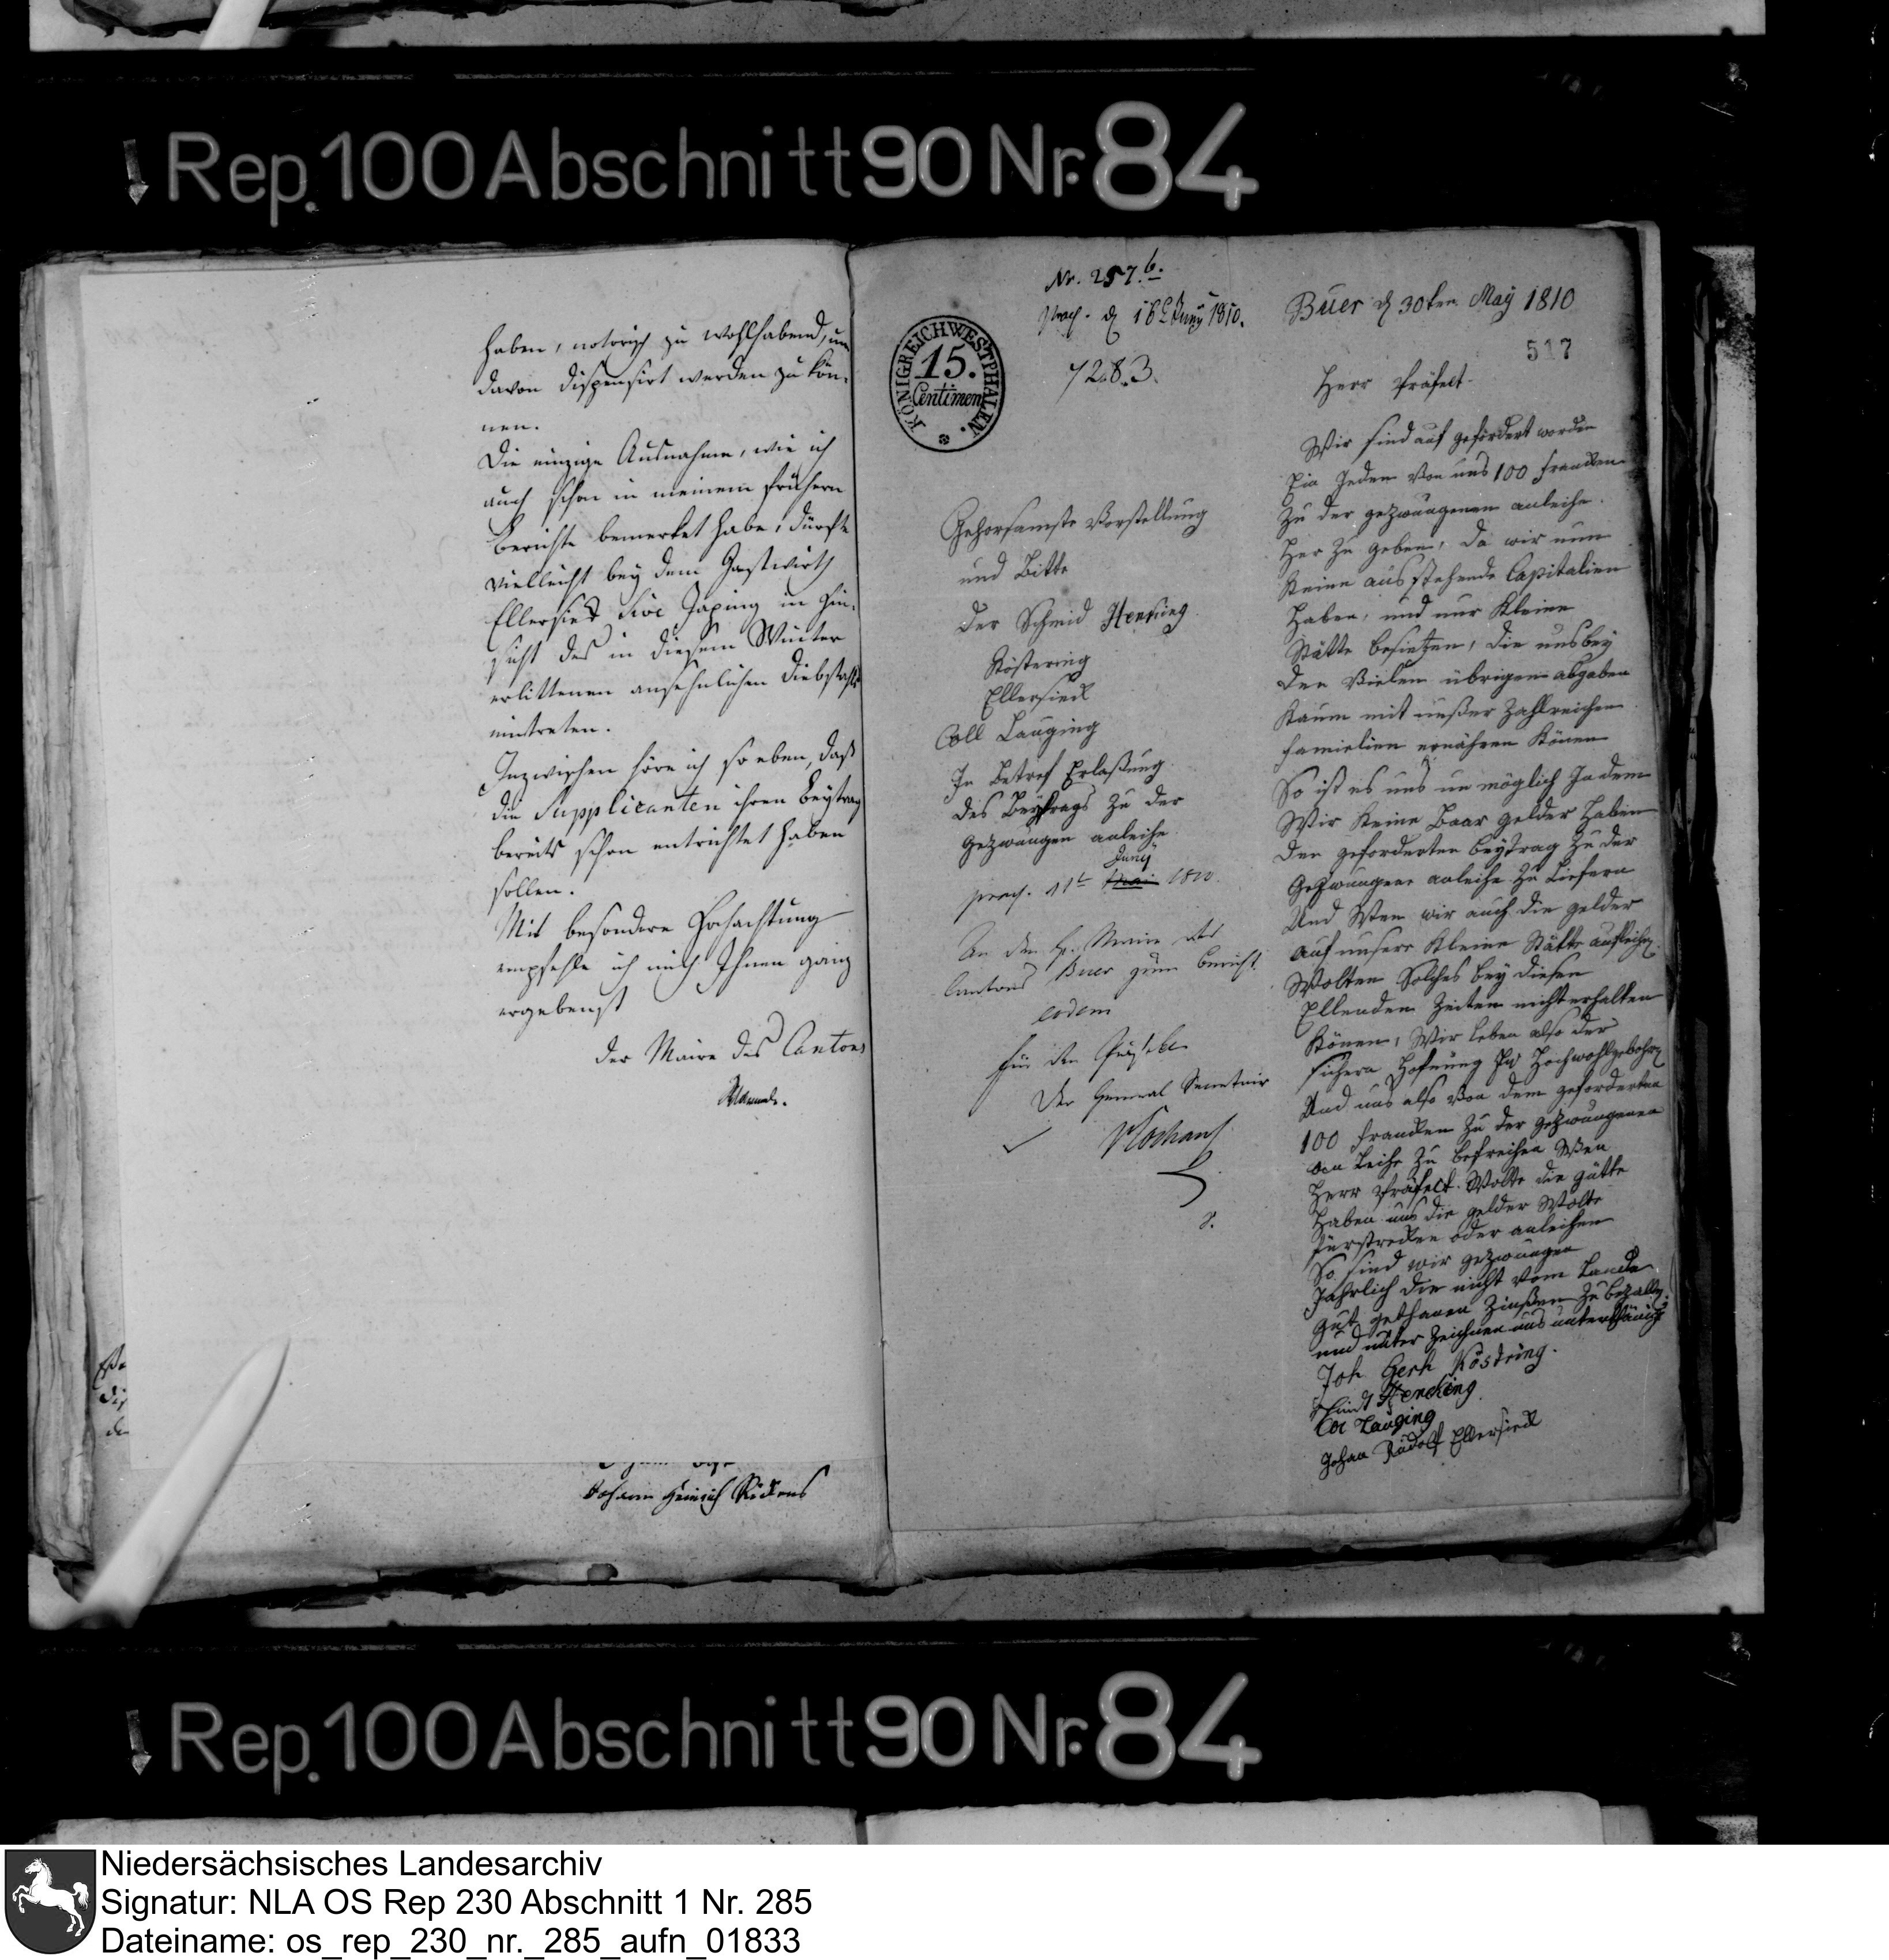 Rep. 100 Abschnitt 90 Nr. 84
haben, notorisch zu wohlhabend, um
davon dispensirt werden zu kön-
nen.
Die einzige Ausnahme, wie ich
auch schon in meinem frühern
Berichte bemerket habe, dürfte
vielleicht bey dem Gastwirth
Ellersiek sive Japing in Hin-
sicht des in diesem Winter
erlittenen ansehnlichen Diebstahls
eintreten.
Inzwischen höre ich so eben, daß
die Supplicanten ihren Beytrag
bereits schon entrichtet haben
sollen.
Mit besondere Hochachtung
empfehle ich mich Ihnen ganz
ergebenst
Der Maire des Cantons
Johann Heinrich
Nr. 257 b.
KÖNIGREICH WESTPHALEN.
15.
Centimen
praes. d 16 Juny 1810.
7283.
Gehorsamste Vorstellung
und Bitte
Der Schmid Hencking
Köstering
Ellersieck
Coll Lauging
In Betref Erlaßung
des Beytrags zu der
gezwungen anleihe
praes. 11t Mai Juny 1810.
An den H. Maire des
Cantons Buer zum Bericht
eodem
Für den Präfecten
Der General Secretair
Buer d 30ten May 1810
517
Herr Präfect
Wir sind auf gefordert worden
Ein Jeden von uns 100 francken
zu der gezwungenen anleihe
Her zu geben, da wir nun
Keine aus stehende Capitalien
Haben, und nur Kleine
Stätte besietzen, die uns bey
den Vielen übrigen abgaben
Kaum mit unßer Zahlreichen
familien ernähren Könen
So ist es uns un möglich In dem
Wir Keine Baar gelder Haben
den geforderten beytrag zu der
Gezwungene anleihe zu Liefern
Und Wen wir auch die gelder
auf unsere Kleine Stätte
Wolten Solches bey diesen
Ellenden Zeiten nicht erhalten
Könen, Wir Leben also der
sichern Hofnung Ew Hochwohlgebohrn
Und uns also Von dem geforderten
100 francken zu der gezwungenen
an Leihe zu befreihen Wen
Herr Präfect Wolte die gütte
Haben uns die gelder Wolte
fürstrecken oder anleihen
So sind wir gezwungen
Jährlich die nicht Vom Lande
gut gethanen Zinßen zu bezallen
und unter Zeichnen uns unterthänigst
Joh Gerh Köstring.
Schmidt Hencking
Col Lauging
Johan Rudolf Ellersieck
Rep. 100 Abschnitt 90 Nr. 84
Niedersächsisches Landesarchiv
Signatur: NLA OS Rep 230 Abschnitt 1 Nr. 285
Dateiname: os_rep_230_nr._285_aufn_01833